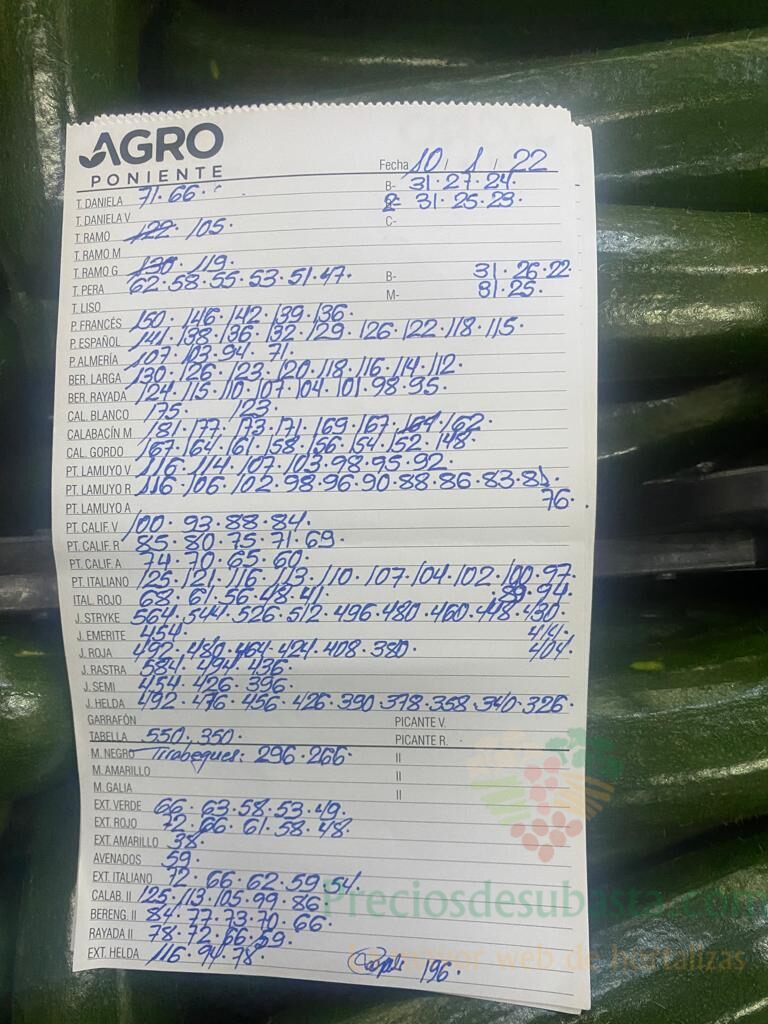 AGRO
PONIENTE
Fecha 10 / 1 / 22
T. DANELA 71·66· B- 31·27·24·
T. DANIELA V 2- 31·25·23·
T. RAMO 122· 105· C-
T. RAMO M
T. RAMO G 130· 119·
T. PERA 62·58·55·53·51·47· B- 31·26·22·
T. LISO M- 31·25·
P. FRANCÉS 150·146·142·139·136·
P. ESPAÑOL 141·138·136·132·129·126·122·118·115·
P. ALMERÍA 107·103·94·71·
BER. LARGA 130·126·123·120·118·116·114·112·
BER. RAYADA 124·115·110·107·104·101·98·95·
CAL. BLANCO 175· 123·
CALABACÍN M 181·177·173·171·169·167·164·162·
CAL. GORDO 167·164·161·158·156·154·152·148·
PT. LAMUYO V 116·114·107·103·98·95·92·
PT. LAMUYO R 116·106·102·98·96·90·88·86·83·81·
PT. LAMUYO A 76·
PT. CALIF. V 100·93·88·84·
PT. CALIF. R 85·80·75·71·69·
PT. CALIF. A 74·70·65·60·
PT. ITALIANO 125·121·116·113·110·107·104·102·100·97·
ITAL. ROJO 68·61·56·48·41· 89·94·
J. STRYKE 564·544·526·512·496·480·460·448·430·
J. EMERITE 454· 414·
J. ROJA 492·480·464·424·408·380· 404·
J. RASTRA 584·494·436·
J. SEMI 454·426·396·
J. HELDA 492·476·456·426·390·378·358·340·326·
GARRAFÓN PICANTE V.
TABELLA 550·350· PICANTE R.
M. NEGRO Tirabeques: 296·266· II
M. AMARILLO II
M. GALIA II
EXT. VERDE 66·63·58·53·49·
EXT. ROJO 72·66·61·58·48·
EXT. AMARILLO 38·
AVENADOS 59·
EXT. ITALIANO 72·66·62·59·54·
CALAB. II 125·113·105·99·86·
BERENG. II 84·77·73·70·66·
RAYADA II 78·72·66·59·
EXT. HELDA 116·94·78· 196·
Preciosdesubasta.com
web de hortalizas